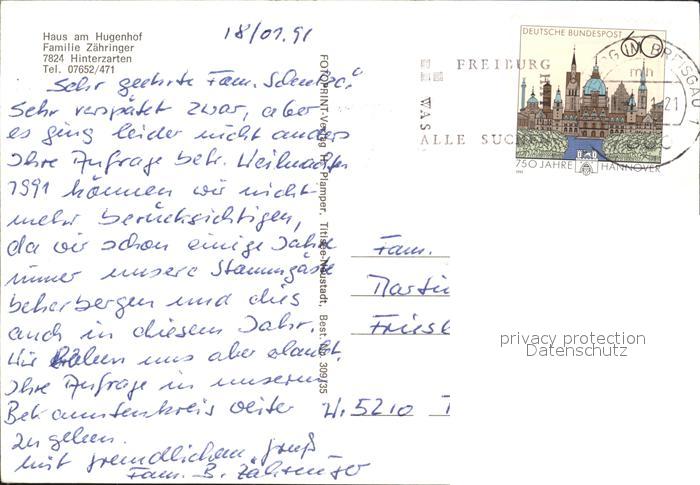 Haus am Hugenhof
Familie Zähringer
7824 Hinterzarten
Tel. 07652/471
18/01.91
Sehr geehrte Fam.
Sehr verspätet zwar, aber
es ging leider nicht anders
Ihre Anfrage betr. Weihnachten
1991 können wir nicht
mehr berücksichtigen,
da wir schon einige Jahre
immer unsere Stammgäste
beherbergen und dies
auch in diesem Jahr.
Wir haben uns aber erlaubt,
Ihre Anfrage in unserem
Bekanntenkreis weiter
zu geben.
Mit freundlichem Gruß
Fam. B. Zähringer
FOTOPRINT-Verlag O. Pfamper, Titisee-Neustadt, Best. Nr. 369/35
DEUTSCHE BUNDESPOST
60
750 JAHRE HANNOVER
FREIBURG
WAS
ALLE SUCHEN
IM BREISGAU 1
mh
21
Fam.
Martin
Friesl
W. 5210
privacy protection
Datenschutz